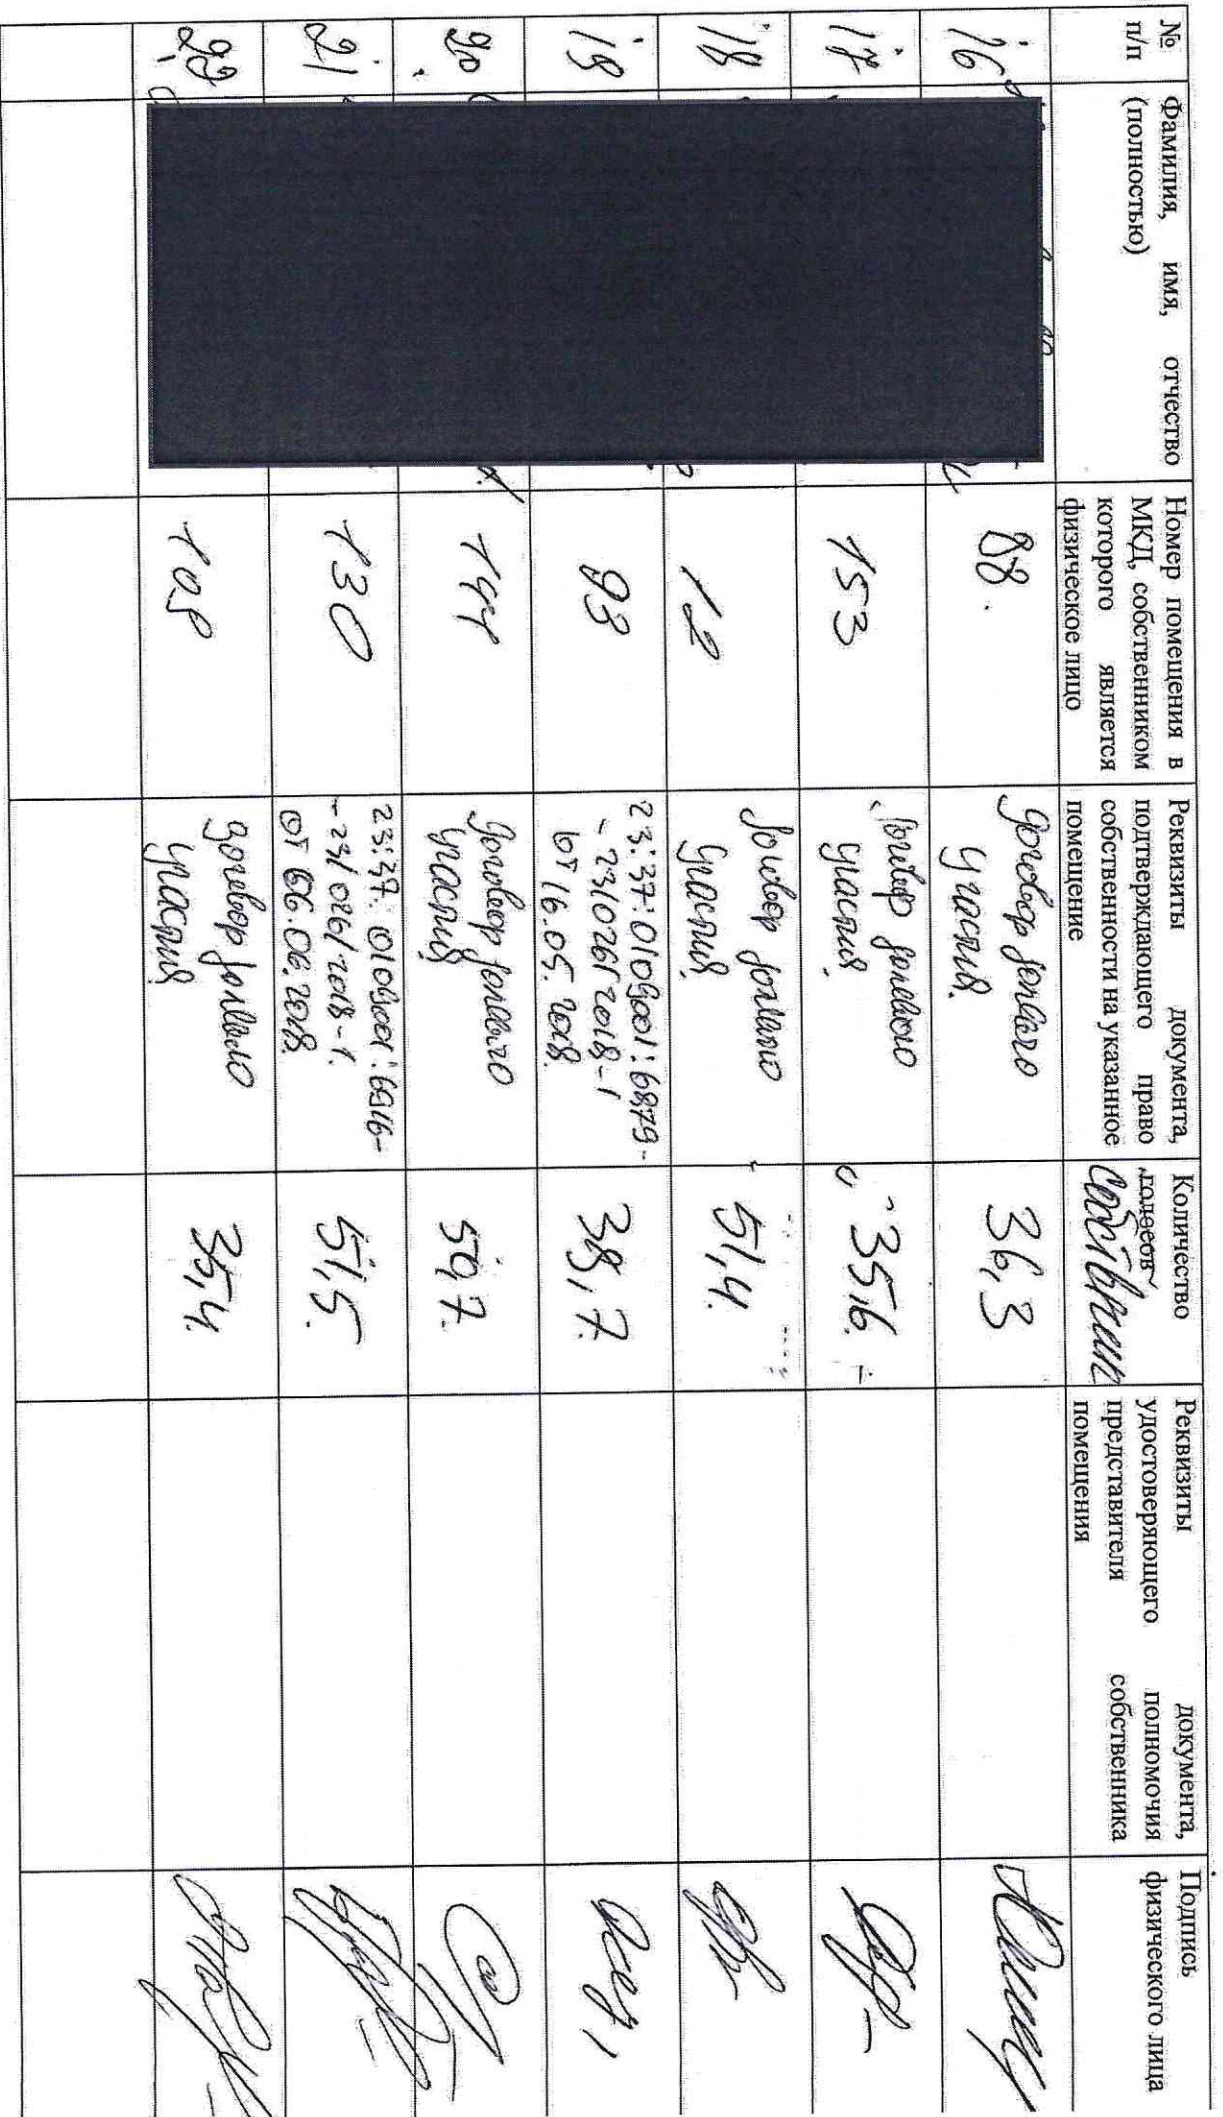 №
п/п
Фамилия, имя, отчество
(полностью)
Номер помещения в
МКД, собственником
которого является
физическое лицо
Реквизиты документа,
подтверждающего право
собственности на указанное
помещение
Количество
голосов
Реквизиты документа,
удостоверяющего полномочия
представителя собственника
помещения
Подпись
физического лица
16
88.
договор долевого
участия.
36,3
17
153
договор долевого
участия.
35,6.
18
12
договор долевого
участия.
51,4.
19
93
23:37:0109001:6879-
-23/026/2018-1
от 16.05.2018.
38,7.
20.
144
договор долевого
участия
50,7.
21
130
23:37:0109001:6916-
-23/026/2018-1.
от 06.06.2018.
51,5.
108
договор долевого
участия
35,4.